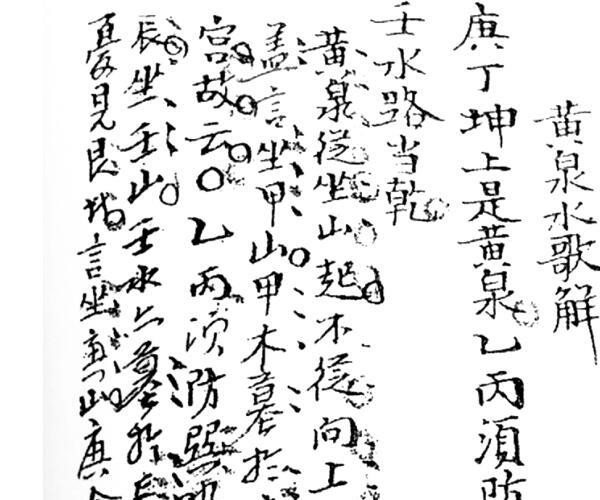 黄泉水歌解
庚丁坤上是黄泉乙丙須防
壬水路当乾
黄泉從坐山起不從向上
盖言坐甲山甲木墓於
宫故云乙丙須防巽
辰坐壬山壬水亦墓於辰
憂見艮 言坐庚山庚